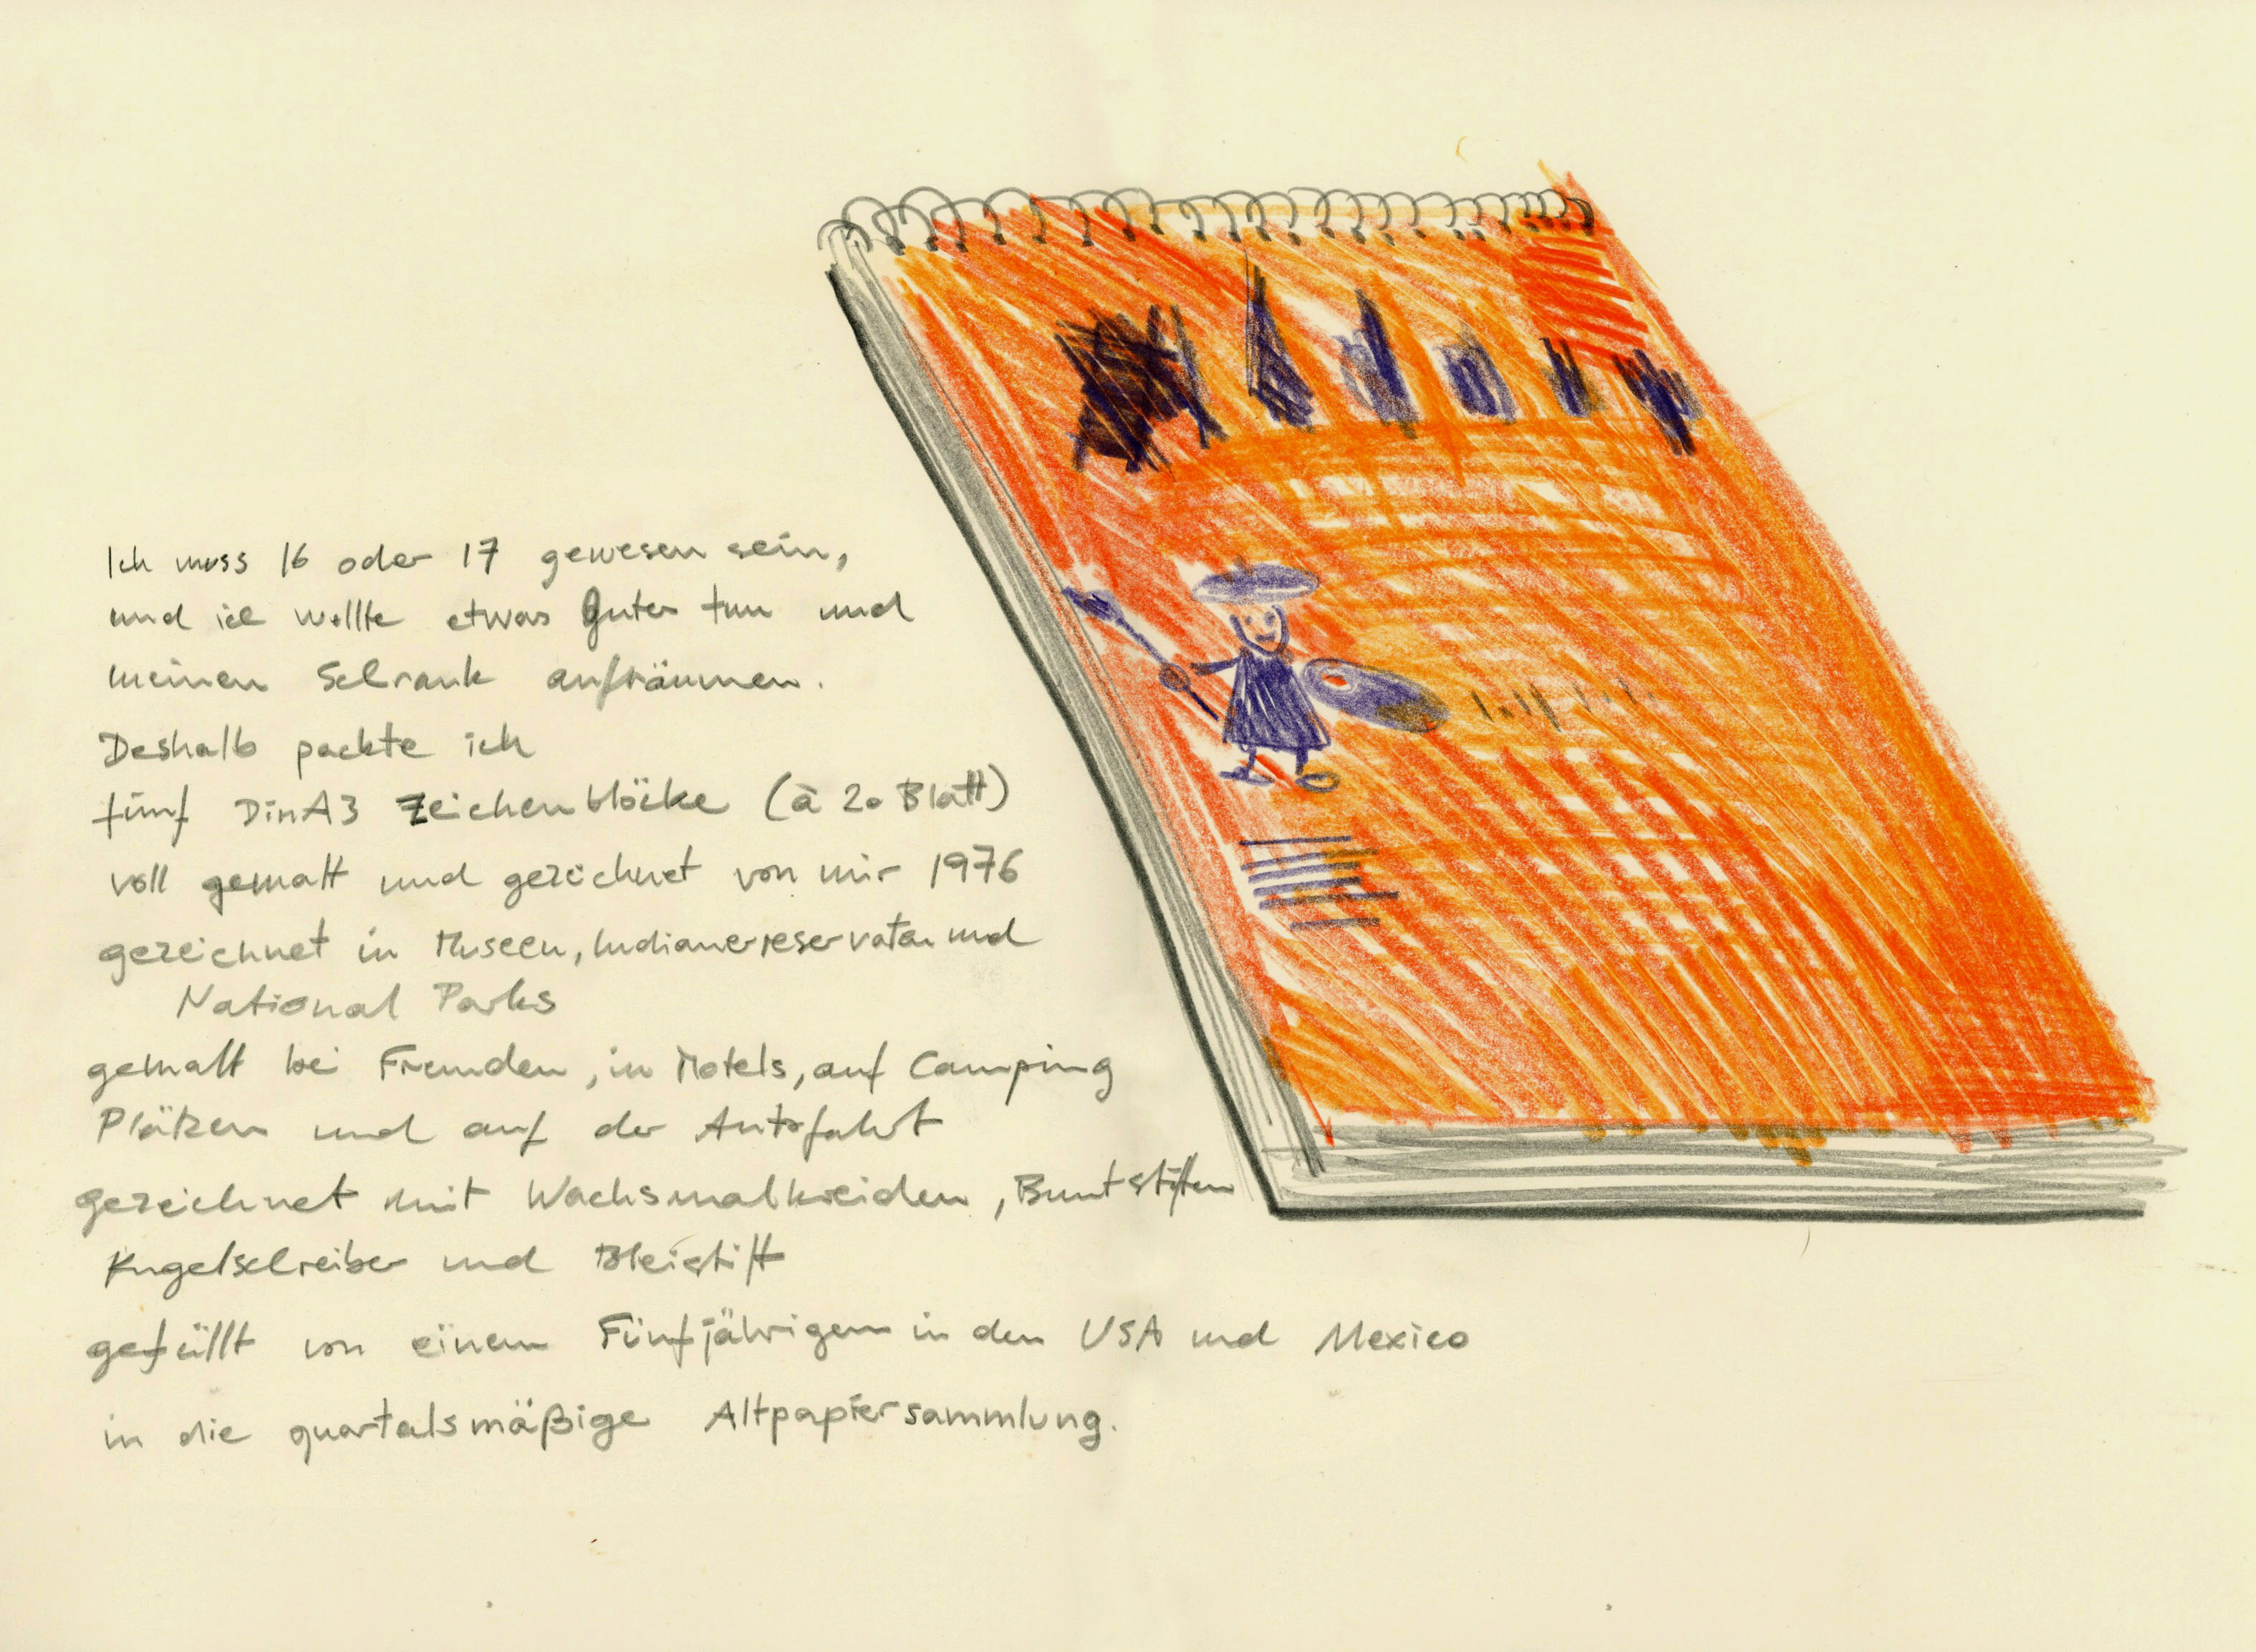 Ich muss 16 oder 17 gewesen sein,
und ich wollte etwas Gutes tun und
meinen Schrank aufräumen.
Deshalb packte ich
fünf DinA3 Zeichenblöcke (à 20 Blatt)
voll gemalt und gezeichnet von mir 1976
gezeichnet in Museen, Indianerreservaten und
National Parks
gemalt bei Fremden, in Motels, auf Camping
Plätzen und auf der Autofahrt
gezeichnet mit Wachsmalkreiden, Buntstiften
Kugelschreiber und Bleistift
gefüllt von einem Fünfjährigen in den USA und Mexico
in die quartalsmäßige Altpapiersammlung.